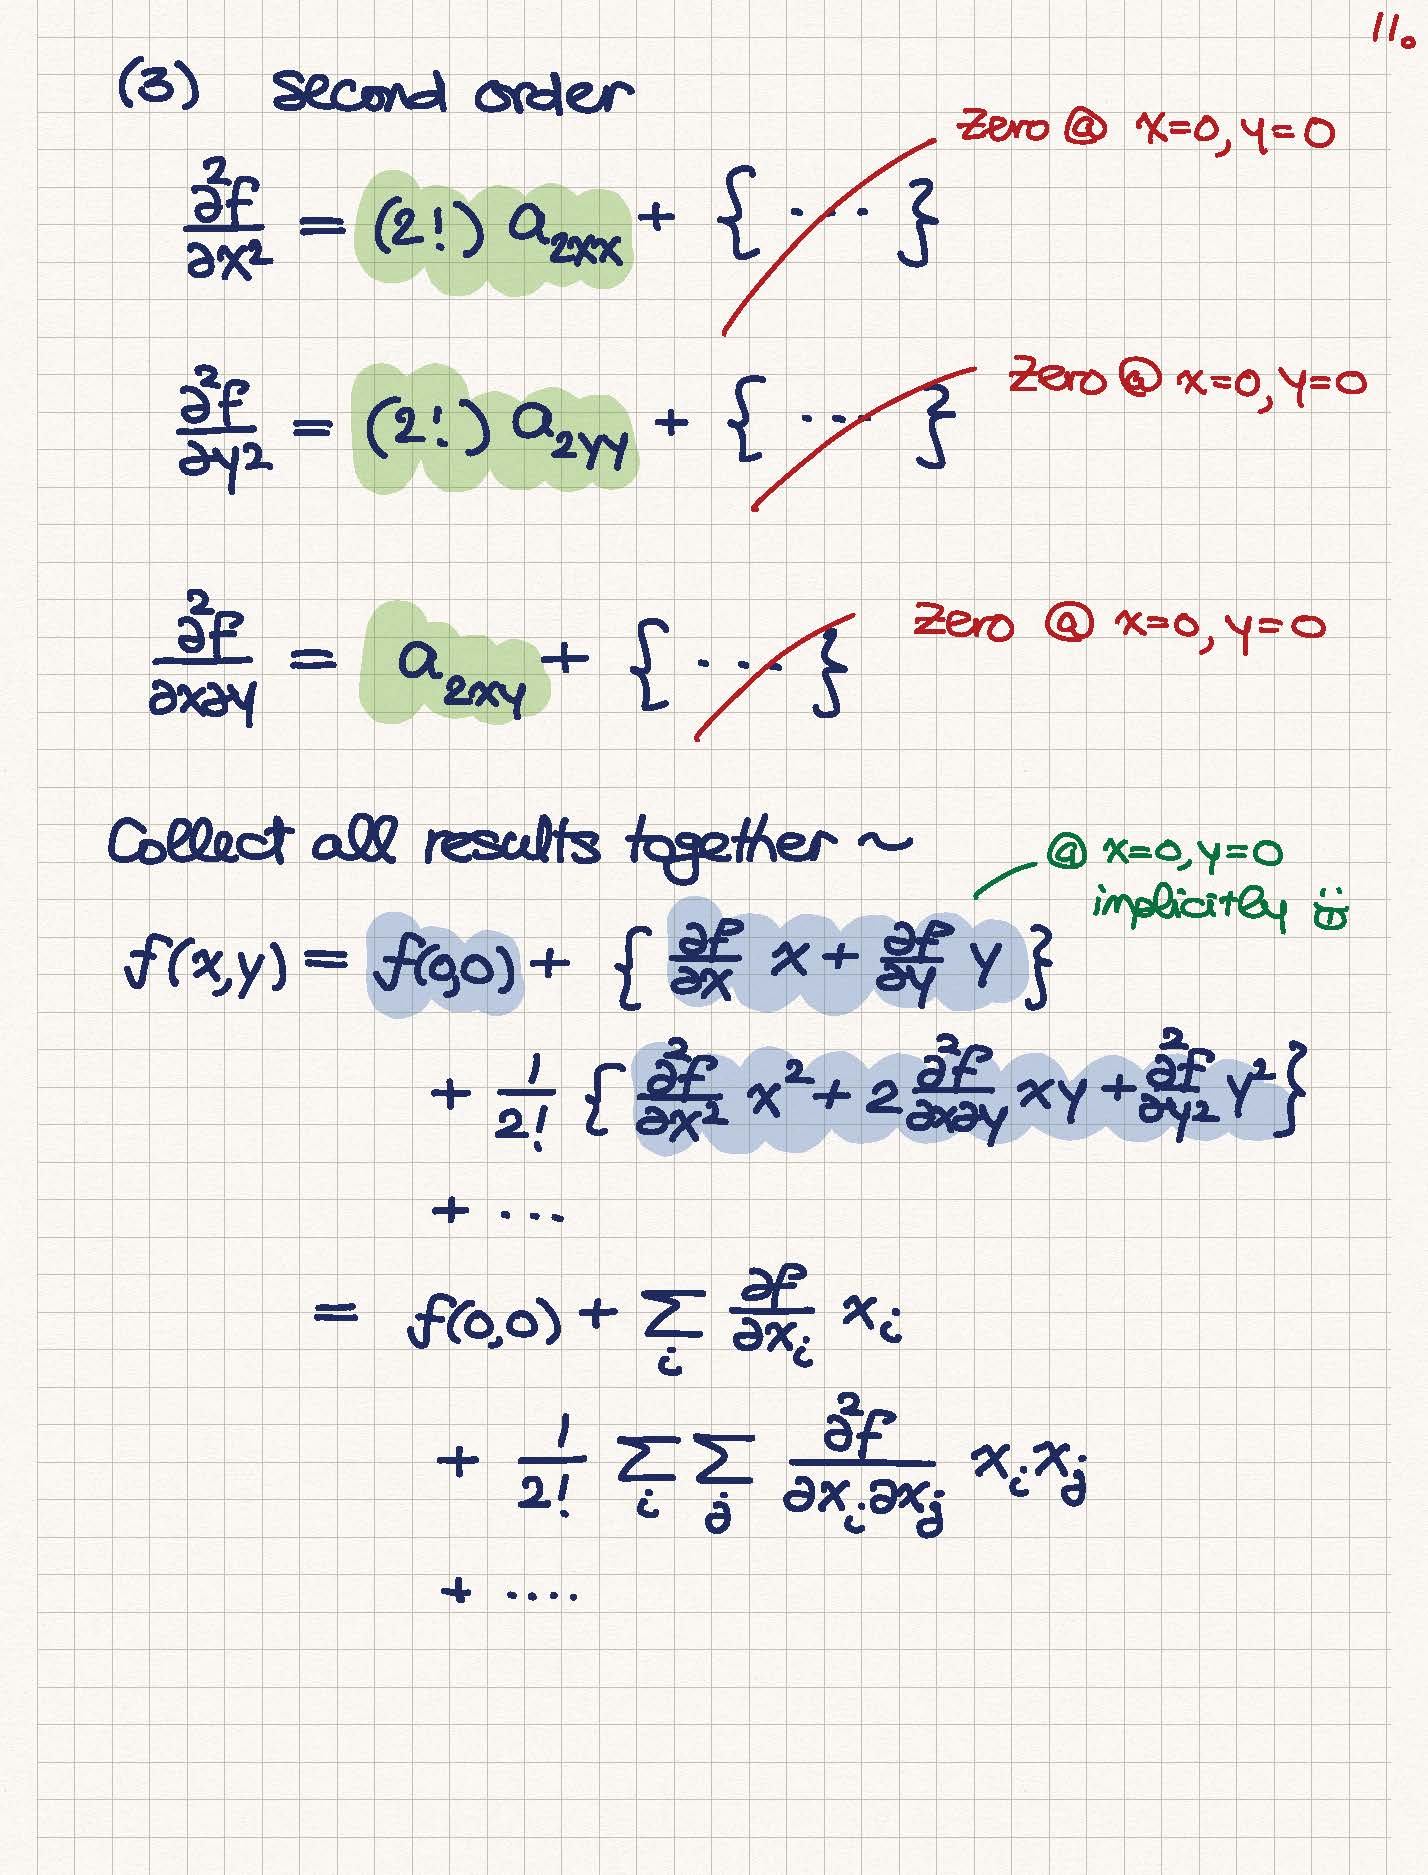 11.
(3) Second order
∂²f/∂x² = (2!) a_{2xx} + { ... } zero @ x=0, y=0
∂²f/∂y² = (2!) a_{2yy} + { ... } zero @ x=0, y=0
∂²f/∂x∂y = a_{2xy} + { ... } zero @ x=0, y=0
Collect all results together ~
@ x=0, y=0
implicitly
f(x,y) = f(0,0) + { ∂f/∂x x + ∂f/∂y y }
+ 1/2! { ∂²f/∂x² x² + 2 ∂²f/∂x∂y xy + ∂²f/∂y² y² }
+ ...
= f(0,0) + ∑_i ∂f/∂x_i x_i
+ 1/2! ∑_i ∑_j ∂²f/∂x_i∂x_j x_i x_j
+ ....